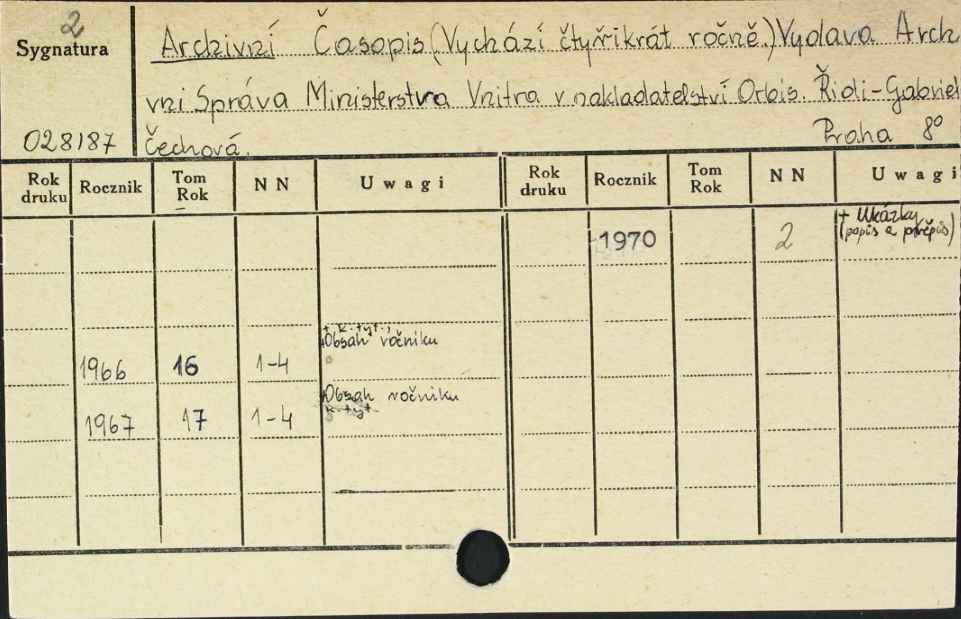 2
Sygnatura
028187
Archivní Časopis (Vychází čtyřikrát ročně.) Vydava Arch
vni Správa Ministerstva Vnitra v nakladatelství Orbis. Řídi-Gabriel
Čechová. Praha 8º
Rok druku Rocznik Tom Rok N N Uwagi Rok druku Rocznik Tom Rok N N Uwagi
1970 2 + Ukázky
(popis a přepis)
+ k. tyt.,
Obsah ročníku
1966 16 1-4
Obsah ročníku
k. tyt.
1967 17 1-4